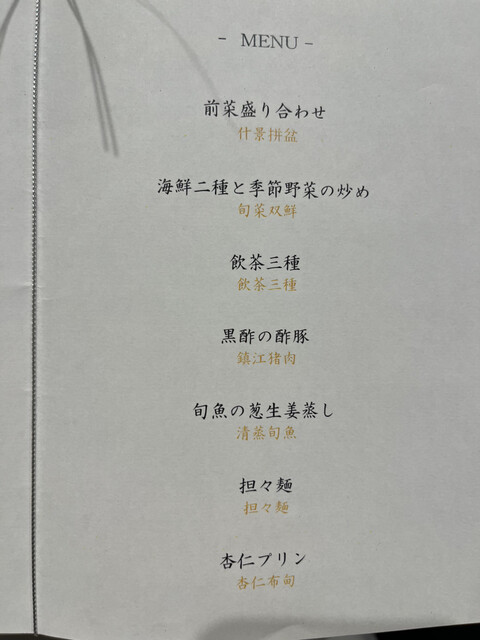 - MENU -
前菜盛り合わせ
什景拼盆
海鮮二種と季節野菜の炒め
旬菜双鮮
飲茶三種
飲茶三種
黒酢の酢豚
鎮江猪肉
旬魚の葱生姜蒸し
清蒸旬魚
担々麺
担々麺
杏仁プリン
杏仁布甸